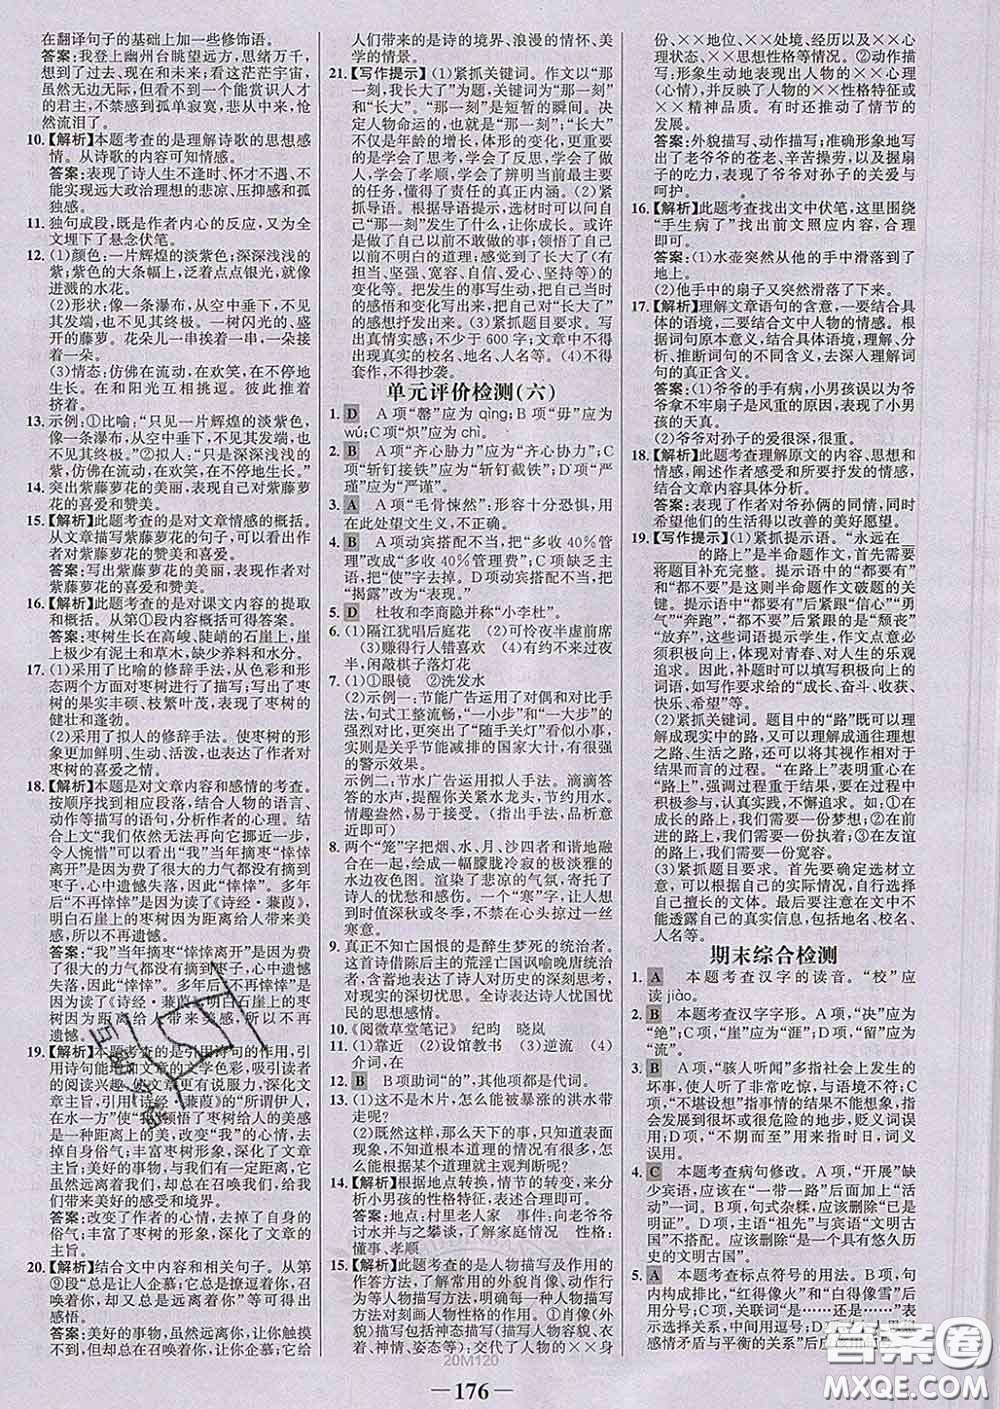 在翻译句子的基础上加一些修饰语。
答案:我登上幽州台眺望远方,思绪万千,
想到了过去和未来;看这茫茫宇宙,
虽然无边无际,但不见一个能赏识人才
的君主,不禁感到孤单寂寞,悲从中来,怆
然流泪了。
10.【解析】本题考查的是理解诗歌的思想感
情。从诗歌的内容可知情感。
答案:表现了诗人生不逢时、怀才不遇、不
能实现远大政治理想的悲凉、压抑感和孤
独感。
11. 独句成段,既是作者内心的反应,又为全
文埋下了悬念伏笔。
12. (1)颜色:一片辉煌的淡紫色;深深浅浅的
紫;紫色的大条幅上,泛着点点银光,就像
迸溅的水花。
(2)形状:像一条瀑布,从空中垂下,不见
其发端,也不见其终极。一树闪光的、盛
开的藤萝。花朵儿一串挨着一串,一朵
接着一朵。
(3)情态:仿佛在流动,在欢笑,在不停地生
长。在和阳光互相挑逗。彼此推着
挤着。
13. 示例:①比喻:“只见一片辉煌的淡紫色,
像一条瀑布,从空中垂下,不见其发端,也
不见其终极。”②拟人:“只是深深浅浅的
紫,仿佛在流动,在欢笑,在不停地生长。”
14. 突出紫藤萝花的美丽,表现了作者对紫
藤萝花的喜爱和赞美。
15.【解析】此题考查的是对文章情感的概括。
从文章描写紫藤萝的句子,可以看出作者
对紫藤萝花的赞美和喜爱。
答案:写出紫藤萝花的美丽,表现了作者
对紫藤萝花的喜爱和赞美。
16.【解析】此题考查的是对课文内容的提取
和概括。从第①段内容概括可得答案。
答案:枣树生长在高峻、陡峭的石崖上,崖
上极少有泥土和草木,缺少养料和水分。
17. (1)采用了比喻的修辞手法,从色彩和形
态两个方面对枣树进行了描写;写出了枣
树的果实丰硕、枝繁叶茂,表现了枣树的
健壮和蓬勃。
(2)采用了拟人的修辞手法。使枣树的形
象更加鲜明、生动、活泼,也表达了作者对
枣树的喜爱之情。
18.【解析】本题是对文章内容和情感的考查。
按顺序找到相应段落,结合人物的语言、
动作等描写的语句,分析作者的心理。结
合上文“我们依然无法再向它挪近一步,
令人惋惜”可以看出“我”当年摘枣“悻悻
离开”是因为费了很大的力气都没有摘到
枣子,心中遗憾失落,因此“悻悻”。多年
后“不再悻悻”是因为读了《诗经·蒹葭》,
明白石崖上的枣树因为距离给人带来美
感,所以不再遗憾。
答案:“我”当年摘枣“悻悻离开”是因为费
了很大的力气都没有摘到枣子,心中遗憾
失落,因此“悻悻”。多年后“不再悻悻”是
因为读了《诗经·蒹葭》,明白石崖上的枣
树因为距离给人带来美感,所以不再
遗憾。
19.【解析】本题考查的是引用诗句的作用,引
用诗句能增加文章的文学色彩,吸引读者
的阅读兴趣,使文章更有说服力,深化文章
主旨,引用《诗经·蒹葭》的“所谓伊人,在
水一方”使“我”领悟了枣树给人的美感
是一种距离上的美,改变“我”的心情,去
掉自身的俗气;丰富了枣树的形象,使文章
表达更有诗意、更加含蓄;深化了文章
主旨:美好的事物,与我们有一定距离,无
法真正得到,但这并不遗憾,这样反而给
我带来美好的感受和境界。
答案:改变了作者的心情,去掉了自身的
俗气;丰富了枣树的形象,深化了文章
主旨。
20.【解析】结合文中内容和相关句子。从第
⑨段“总是让人企慕:它总是撩逗着你,但
却又总是远离着你,你总是召唤着你,奔
向它,却又总是无法得到它”可以看出
感悟。
答案:美好的事物,虽然远离你,让你无法
得到,但又召唤着你、让你企慕。它给
人们带来的是诗的境界、浪漫的情怀、美
学的情景。
21.【写作提示】(1)紧抓关键词。作文以“那
一刻,我长大了”为题,关键词是“那一
刻”“长大”。“那一刻”是短暂的瞬间。
其人物命运的,也是“那一刻”;“长大”不
只代表年龄的增长、体形的变化,更多的
是学会了思考,学会了反思,学会了方
法,学会了取舍,学会了辨明当前是非的能
力,懂得了责任的真正内涵。(2)紧
抓导语。根据导语提示,选材时可以写那
一刻发生了什么,让你成长。或许是你
以前不明白的道理;感觉到了长大(有
担当、坚强、宽容、自信、爱心、坚持等等)
的变化。把发生的事写生动,把自己当时
的感悟和变化写出来,对“长大了”的情
感抒发出来。(3)紧抓题目要求。写出
真情实感;不少于600字;文章中不得
出现真实的校名、地名、人名等。(4)不
得抄袭。
单元评价检测(六)
1. D A项“罄”应为 qìng;B项“毋”应为
wú;C项“炽”应为 chì。
2. B A项“齐心胁力”应为“齐心协力”;
C项“斩钉接铁”应为“斩钉截铁”;D项“严
瑾”应为“严谨”。
3. A A项“毛骨悚然”:形容十分恐惧,用
在此处望文生义,不正确。
4. B A项动宾搭配不当,把“多收40%管
理”改成“多收40%管理费”;C项缺乏主
语,把“使”字去掉。D项动宾搭配不当,把
“揭露”改为“表现”。
5. D 杜牧和李商隐并称“小李杜”。
6. (1)隔江犹唱后庭花 (2)可怜夜半虚前席
(3)赚得行人错喜欢 (4)有约不来过夜
半,闲敲棋子落灯花
7. (1)①眼镜 ②洗发水
(2)示例一:节能广告运用了对偶和对比手
法,句式工整流畅,“一小步”和“一大步”的
强烈对比,更突出了“随手关灯”看似小事,
实则是关乎节能减排的国家大计,有很强的
警示效果。
示例二:节水广告运用拟人手法。滴滴答
答的水声,提醒你关紧水龙头,节约用水。
情趣盎然,易于接受。(指出手法,品析意
近即可)
8. 两个“笼”字把烟、水、月、沙四者和谐地融
合在一起,绘成一幅朦胧冷寂的极淡雅的
水边夜色图。渲染了悲凉的气氛,寄托了
诗人的忧愁和感伤。一个“寒”字,让人感
到时值深秋或冬季,不禁在心头掠过一丝
寒意。
9. 真正不知亡国恨的是醉生梦死的统治者。
这首诗借陈后主的荒淫亡国讽喻晚唐统治
者,表达了诗人对历史的深刻思考,对现实
的深切忧思。全诗表达诗人忧国忧民
的思想感情。
10.《阅微草堂笔记》 纪昀 晓岚
11. (1)靠近 (2)设馆教书 (3)逆流 (4)
介词,在
12. B B项助词“的”,其他项都是代词。
13. (1)这不是木片,怎么能被暴涨的洪水带
走呢?
(2)既然这样,那么天下的事,只知道表面
现象,不知道根本道理的情况有很多,难道
能根据某个道理就主观判断呢?
14.【解析】根据地点转换,情节的转变,来分
析小男孩的性格特征,表述合理即可。
答案:地点:村里老人家 事件:向老爷爷
讨水并与之攀谈,了解家庭情况 性格:
懂事、孝顺
15.【解析】此题考查的是人物描写及作用的
作答方法,了解常用的外貌肖像、动作行
为等人物描写方法,明确每一种人物描写
方法对刻画人物性格的作用。①肖像(外
貌)描写包括神态描写(描写人物容貌、衣
着、神情、姿态等):交代了人物的××身
份、××地位、××处境、经历以及××心
态、××思想性格等情况。②动作
描写:形象生动地表现出人物的××心理
(心情),并反映了人物的××性格特征或
××精神品质。有时还推动了情节的
发展。
答案:外貌描写、动作描写;准确形象地表
现了老爷爷的苍老、辛苦操劳,以及握扇
子的吃力,表现了爷爷对孙子的关爱与
呵护。
16.【解析】此题考查找出文中伏笔,这里围绕
“手生病了”找出前文照应内容,合理
即可。
答案:(1)水壶突然从他的手中滑落到了
地上。
(2)他手中的扇子又突然滑落了下来。
17.【解析】理解文章语句的含意,一要结合具
体的语境,二要结合文中人物的情感。根
据词句原本意义,结合具体语境,理解、分
析、推断词句的不同含义,去深入探究词句
的真正含义。
答案:(1)爷爷的手有病,小男孩误以为爷
爷拿不牢扇子是风重的原因,表现了小男
孩的天真。
(2)爷爷对孙子的爱很深,很重。
18.【解析】此题考查理解原文的内容、思想和
情感,阐述作者感受和所要抒发的情感,
要结合文章具体内容分析。
答案:表现了作者对爷孙俩的同情,同时
希望他们的生活得以改善的美好愿望。
19.【写作提示】(1)紧抓导语。“永远在______
的路上”是半命题作文,首先需要
将题目补充完整。提示语中的“都要有”
和“都不要有”是半命题作文破题的关键。
提示语中“都要有”后紧跟“信心”“勇
气”“奔跑”,“都不要有”后紧跟的是“颓丧”
“放弃”,这些词语提示学生,作文必须情
感积极向上,表现对青春、对人生的乐观
追求。因此,补题时可以填写积极向上的
词语,如填写的内容为“成长、奋斗、收获、
快乐、希望”等。
(2)紧抓关键词。题目中的“路”可以理解
成现实中的路,也可以理解成通往理想
之路、生活之路,还可以将其视作相对于
结果而言的过程。“在路上”表明重心在
“路上”,强调过程重于结果,要在过程中
积极参与,真正体验、感悟。如:①在
成长的路上,我们需要一份梦想;②在前
进的路上,我们需要一份执着;③在友谊
的路上,我们需要一份宽容。
(3)紧抓题目要求。首先要确定选材立
意,可以根据自己的实际情况,自行选择
自己擅长的文体。最后要注意在文中不
能透露自己的真实信息,包括地名、校名、
人名等。
期末综合检测
1. A 本题考查汉字的读音。“校”应
读 jiào。
2. B 本题考查汉字字形。A项,“决”应为
“绝”;C项,“崖”应为“涯”;D项,“留”应为
“流”。
3. B A项,“骇人听闻”多指社会上发生的
坏事,使人听了非常吃惊,与语境不
符;C项,“不堪设想”指事情的结果不能想象,指
会发展到很坏或很危险的地步,贬义词
误用;D项,“不期而至”用来指时日,词义
误用。
4. C 本题考查病句修改。A项,“开展”缺
少宾语,应该在“一带一路”后面加上“活
动”一词;B项,句式杂糅,应该删除“已是
明证”;D项,主语“祖先”与宾语“文明古
国”不搭配,应该删除“是一个具有悠久历
史的文明古国”。
5. A 本题考查标点符号的用法。B项,句
内构成排比,“红得像火”和“白得像雪”后
用分号;C项,关联词“是……还是……”表
示选择关系,中间用逗号;D项,书名号
情感矛盾与平衡的关系”后应
20M120
— 176 —
答案圈
MXQE.COM